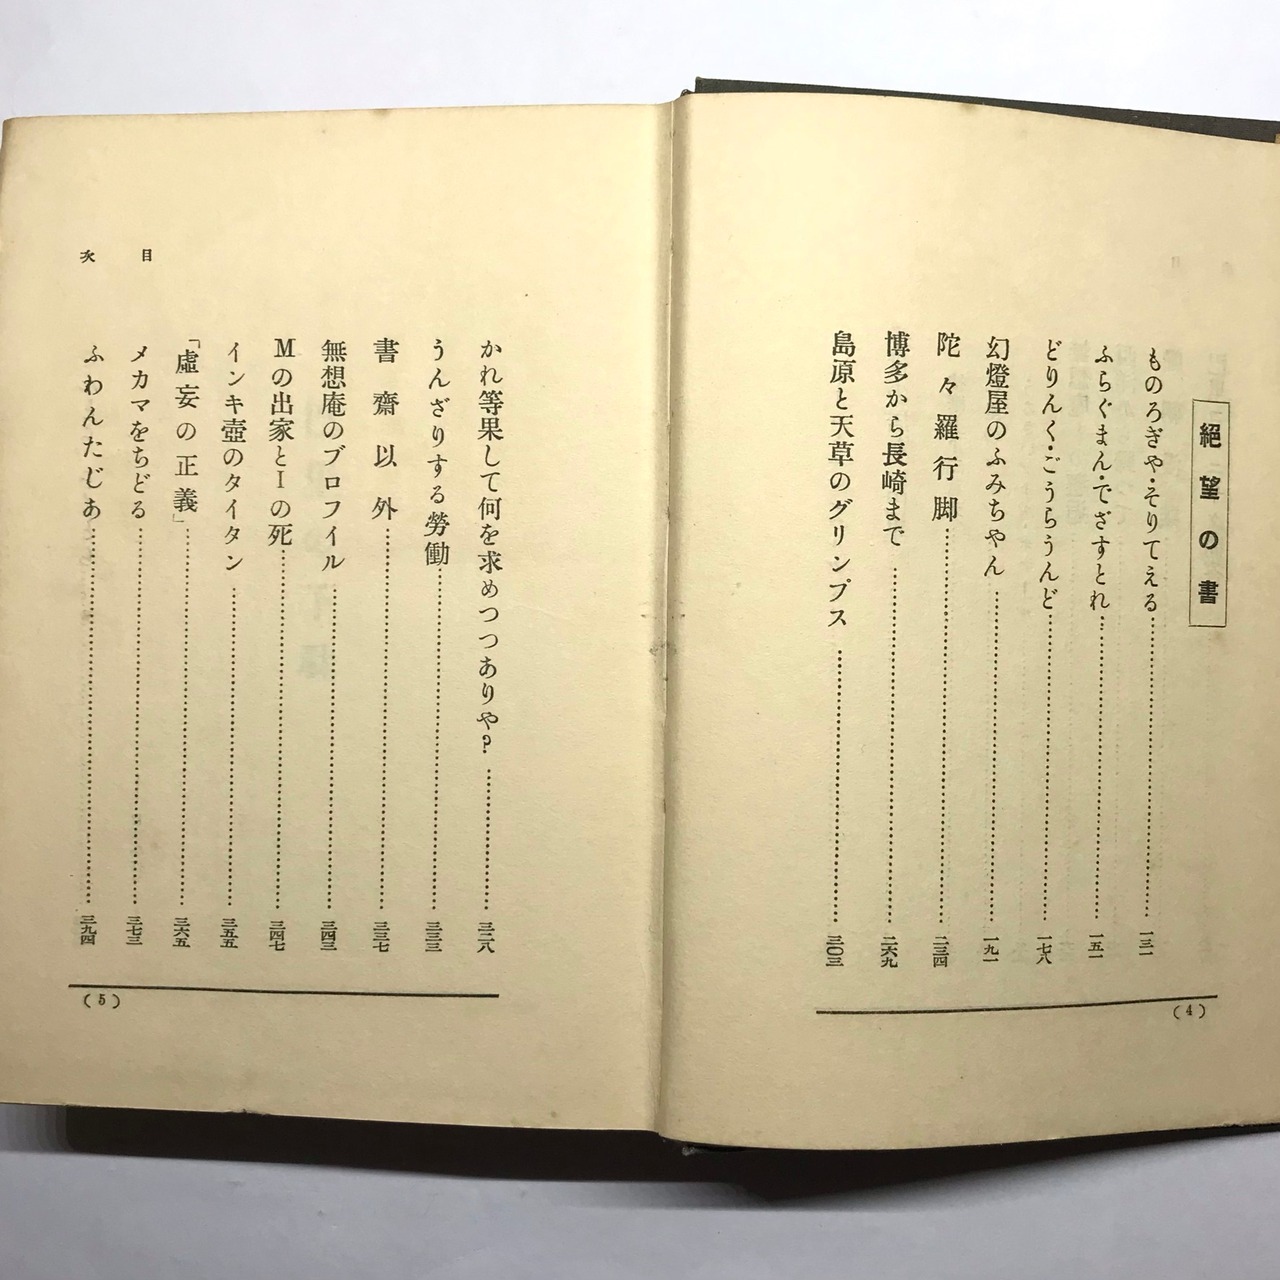 絶望の書
ものろぎや・そりてえる……………一三一
ふらぐまん・でざすとれ……………一五一
どりんく・ごうらうんど……………一七八
幻燈屋のふみちやん……………一九一
陀々羅行脚……………二三四
博多から長崎まで……………二六九
島原と天草のグリンプス……………三〇三
(4)
目次
かれ等果して何を求めつつありや?……………三二八
うんざりする勞働……………三三三
書齋以外……………三三七
無想庵のプロフイル……………三四三
Mの出家とIの死……………三四七
インキ壺のタイタン……………三五五
「虛妄の正義」……………三六五
メカマをちどる……………三七三
ふわんたじあ……………三九四
(5)